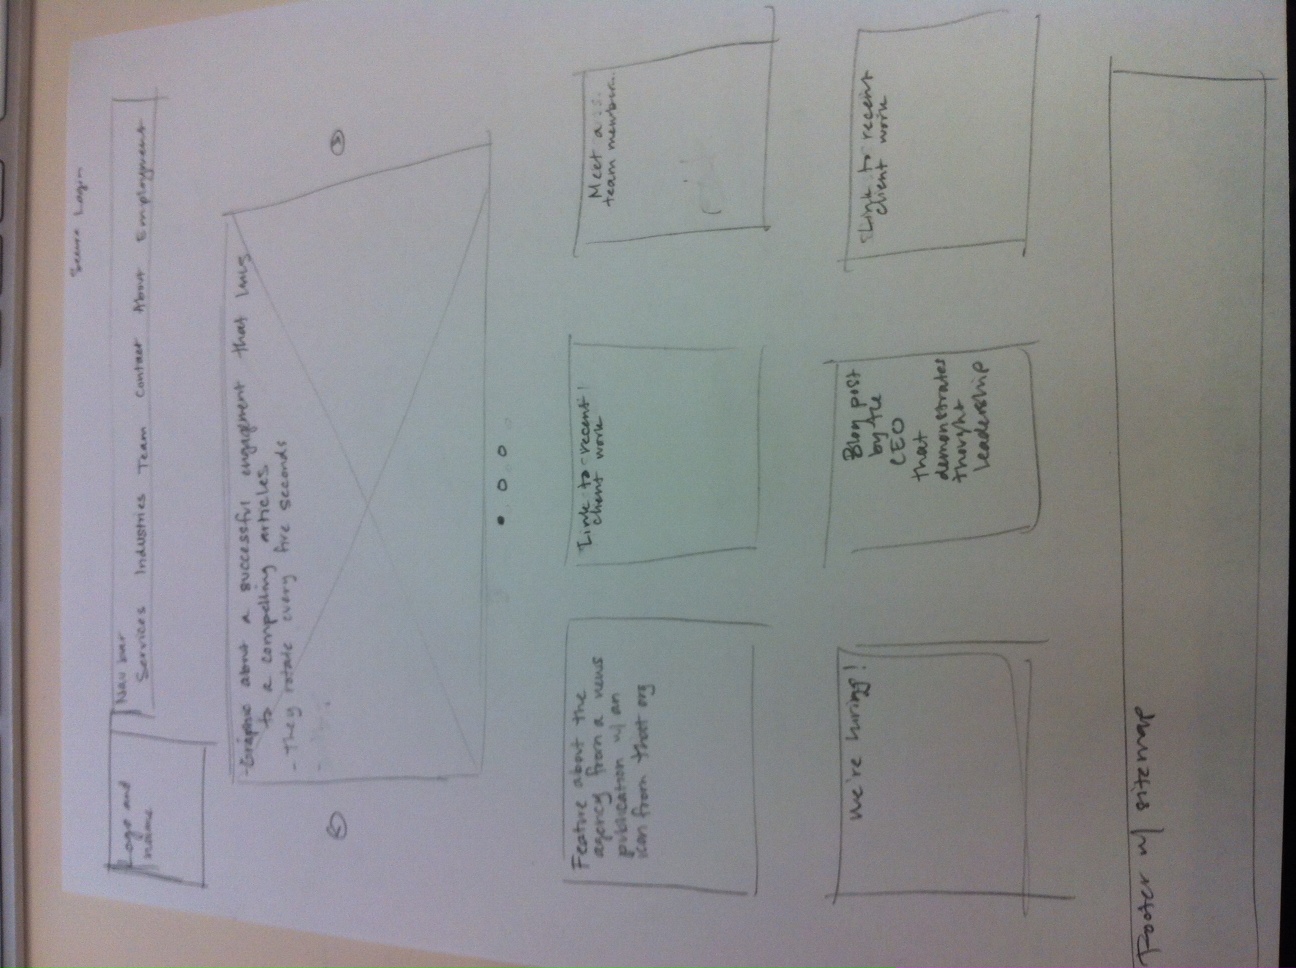 Secure Login
Logo and
name
Nav bar
Services Industries Team Contact About Employment
-Graphic about a successful engagement that links
to a compelling articles
- They rotate every five seconds
Feature about the
agency from a news
publication w/ an
icon from that org
Link to recent
client work
Meet a
team member...
We're hiring!
Blog post
by the
CEO
that
demonstrates
thought
leadership
Link to recent
client work
Footer w/ sitemap